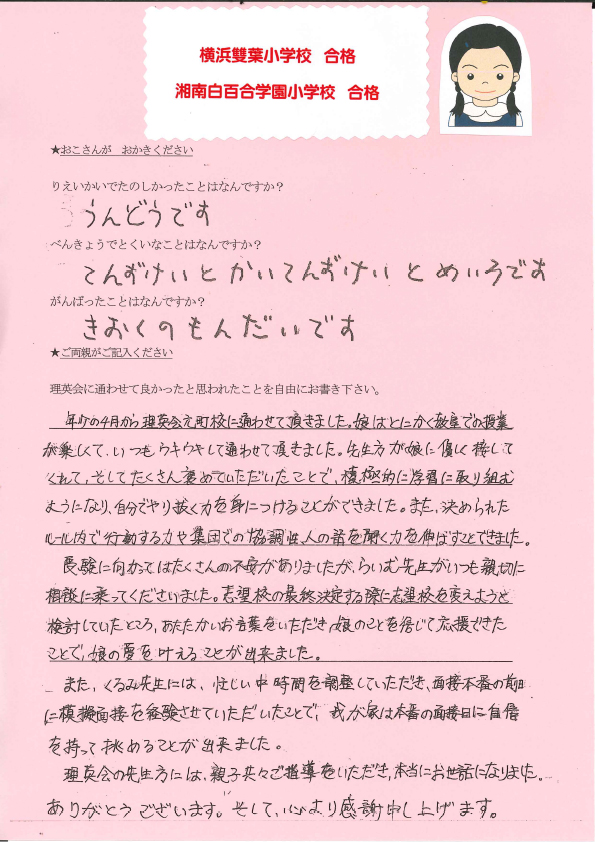 横浜雙葉小学校 合格
湘南白百合学園小学校 合格
★おこさんが おかきください
りえいかいでたのしかったことはなんですか？
うんどうです
べんきょうでとくいなことはなんですか？
てんずけいと かいてんずけい と めいろです
がんばったことはなんですか？
きおくのもんだいです
★ご両親がご記入ください
理英会に通わせて良かったと思われたことを自由にお書き下さい。
年中の4月から理英会元町校に通わせて頂きました。娘はとにかく教室での授業
が楽しくて、いつもウキウキして通わせて頂きました。先生方が娘に優しく接して
くれて、そしてたくさん褒めていただいたことで、積極的に学習に取り組む
ようになり、自分でやり抜く力を身につけることができました。また、決められた
ルール内で行動する力や集団での協調性、人の話を聞く力を伸ばすことできました。
受験に向かってはたくさんの不安がありましたが、らいむ先生がいつも親切に
相談に乗ってくださいました。志望校の最終決定する際に志望校を変えようと
検討していたところ、あたたかいお言葉をいただき、娘のことを信じて応援できた
ことで、娘の夢を叶えることが出来ました。
また、くるみ先生には、忙しい中時間を調整していただき、面接本番の前日
に模擬面接を経験させていただいたことで、我が家は本番の面接日に自信
を持って挑めることが出来ました。
理英会の先生方には、親子共々ご指導をいただき、本当にお世話になりました。
ありがとうございます。そして、心より感謝申し上げます。